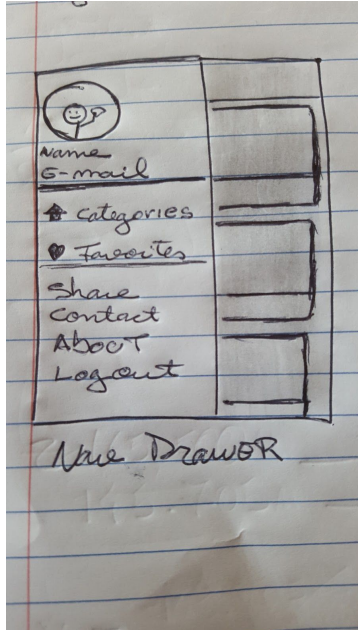 Name
E-mail
Categories
Favorites
Share
Contact
ABOUT
Logout
Nave DRAWER